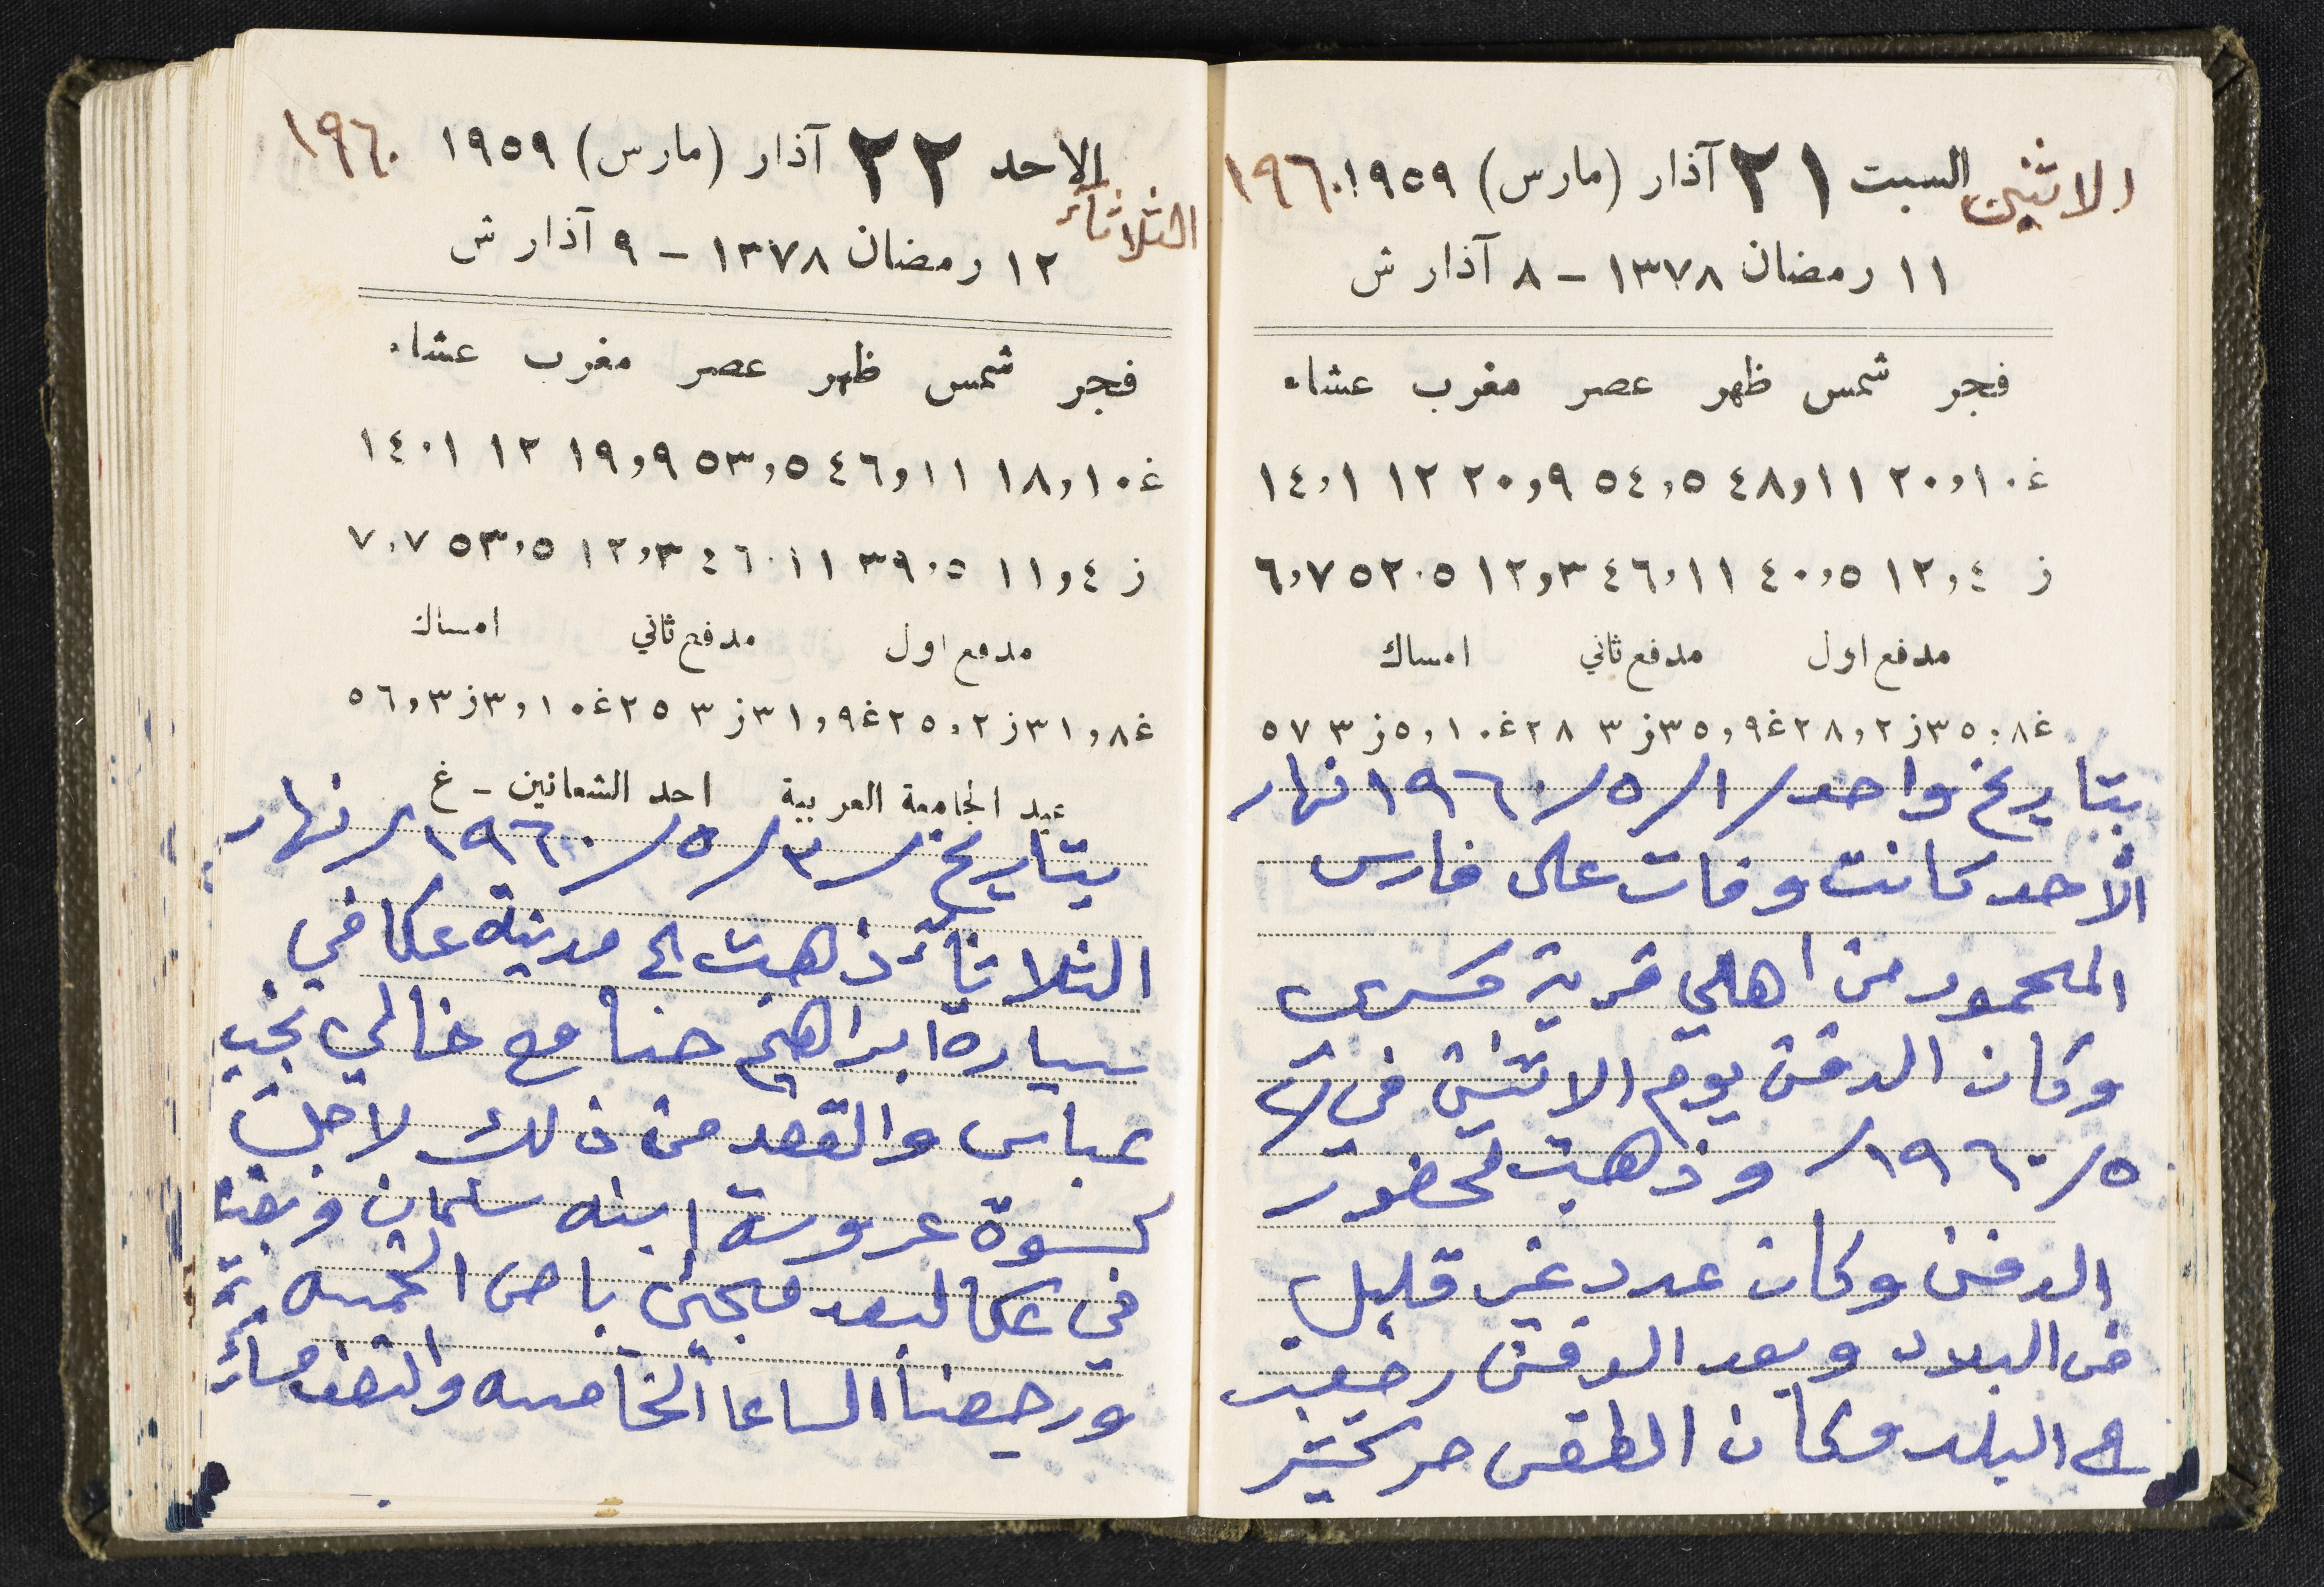 الاثنين السبت ٢١ آذار (مارس) ١٩٥٩ ١٩٦٠
١١ رمضان ١٣٧٨ – ٨ آذار ش
فجر شمس ظهر عصر مغرب عشاء
غ ١٠,٢٠ ١١,٤٨ ٥,٥٤ ٩,٢٠ ١٢ ١,١٤
ز ٤,١٢ ٥,٤٠ ١١,٤٦ ٣,١٢ ٥,٥٢ ٧,٦
مدفع اول مدفع ثاني امساك
غ٨,٣٥ز٢,٢٨ غ٩,٣٥ز٣ ٢٨ غ١٠,٥ز٣ ٥٧
بتاريخ واحد /١/٥/١٩٦٠ نهار
الأحد كانت وفات علي فارس
المحمود من اهلي قرية كسرى
وكان الدفن يوم الاثنين في /٢
٥/١٩٦٠/ وذهبت لحضور
الدفن وكان عدد غير قليل
من البلاد وبعد الدفن رجعت
الى البلد وكان الطقس حر كثير
الاحد ٢٢ آذار (مارس) ١٩٥٩ ١٩٦٠
الثلاثاء
١٢ رمضان ١٣٧٨ – ٩ آذار ش
فجر شمس ظهر عصر مغرب عشاء
غ ١٠,١٨ ١١,٤٦ ٥,٥٣ ٩,١٩ ١٢ ١,١٤
ز ٤,١١ ٥,٣٩ ١١,٤٦ ٣,١٢ ٥,٥٣ ٧,٧
مدفع اول مدفع ثاني امساك
غ٨,٣١ز٢,٢٥ غ٩,٣١ز٣ ٢٥ غ١٠,٣ز٣,٥٦
عيد الجامعة العربية احد الشعانين – غ
بتاريخ /٣/٥/١٩٦٠/ نهار
الثلاثاء ذهبت الى مدينة عكا في
سيارة ابراهيم حنا مع خالي نجيب
عباس والقصد من ذلك لاجل
كسوة عروسة ابنه سلمان وبقينا
في عكا لبعد مجيئ باص الخمسه
ورجعنا الساعا الخامسه والنصف مساءً